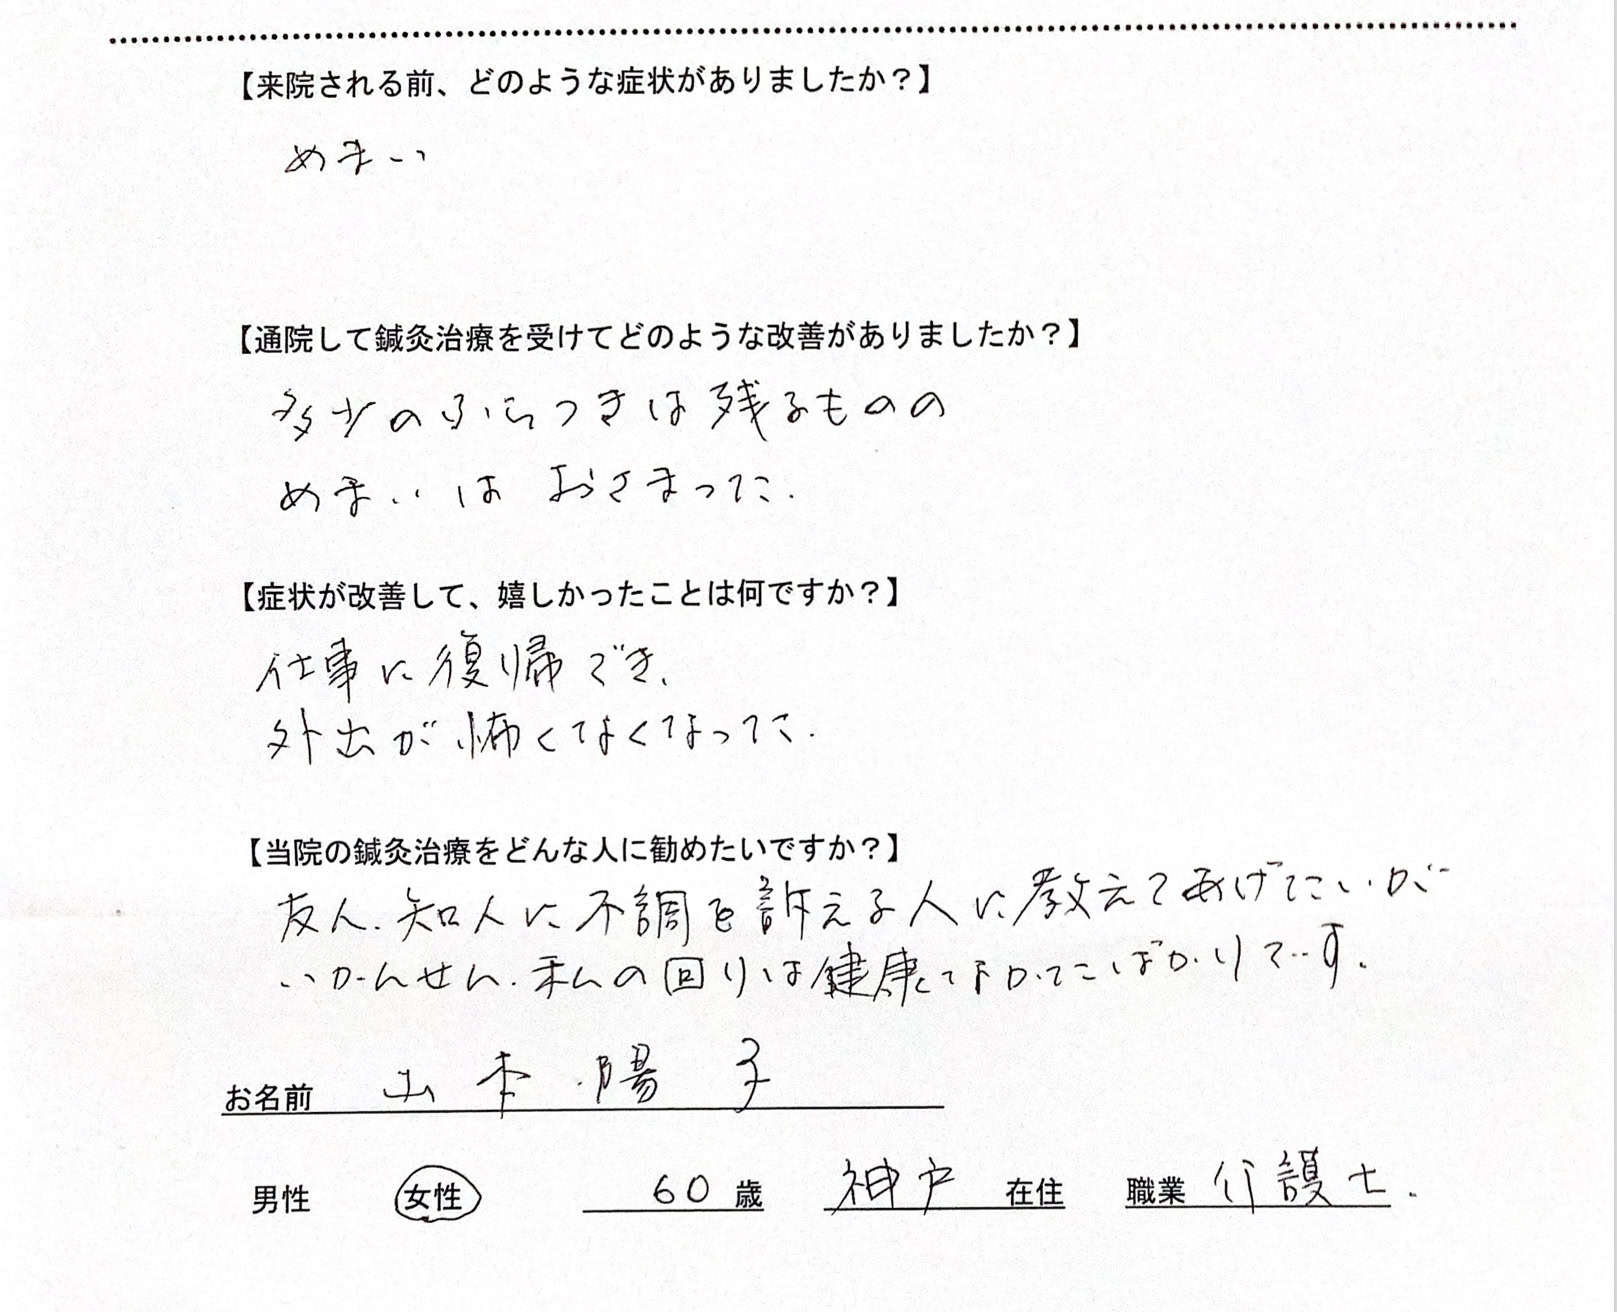 【来院される前、どのような症状がありましたか？】
めまい
【通院して鍼灸治療を受けてどのような改善がありましたか？】
多少のふらつきは残るものの
めまいは おさまった.
【症状が改善して、嬉しかったことは何ですか？】
仕事に復帰でき、
外出が怖くなくなった.
【当院の鍼灸治療をどんな人に勧めたいですか？】
友人、知人に不調を訴える人に教えてあげたいが
いかんせん、私の回りは健康な ばかりです.
お名前 山本 陽子
男性 女性 60 歳 神戸 在住 職業 介護士.